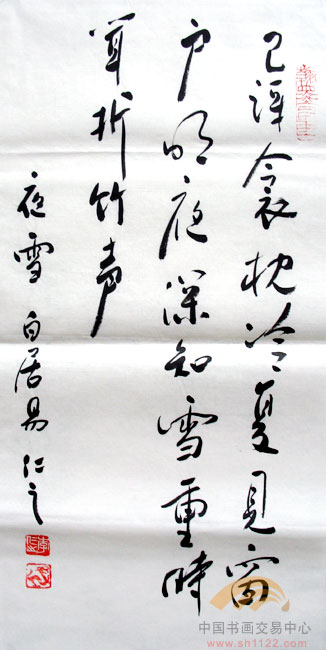 已訝衾枕冷复見窗
户明夜深知雪重時
聞折竹声
夜雪 白居易 仁之
中国书画交易中心
www.sh1122.com